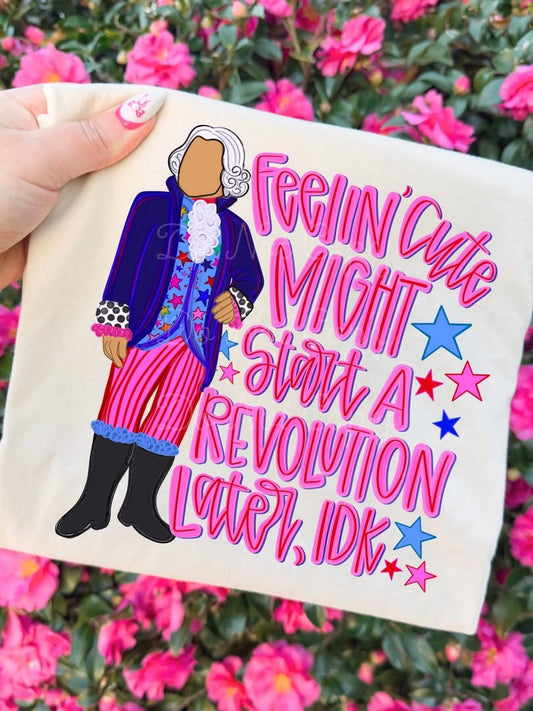 Feelin' Cute
MIGHT
Start A
REVOLUTION
Later, IDK